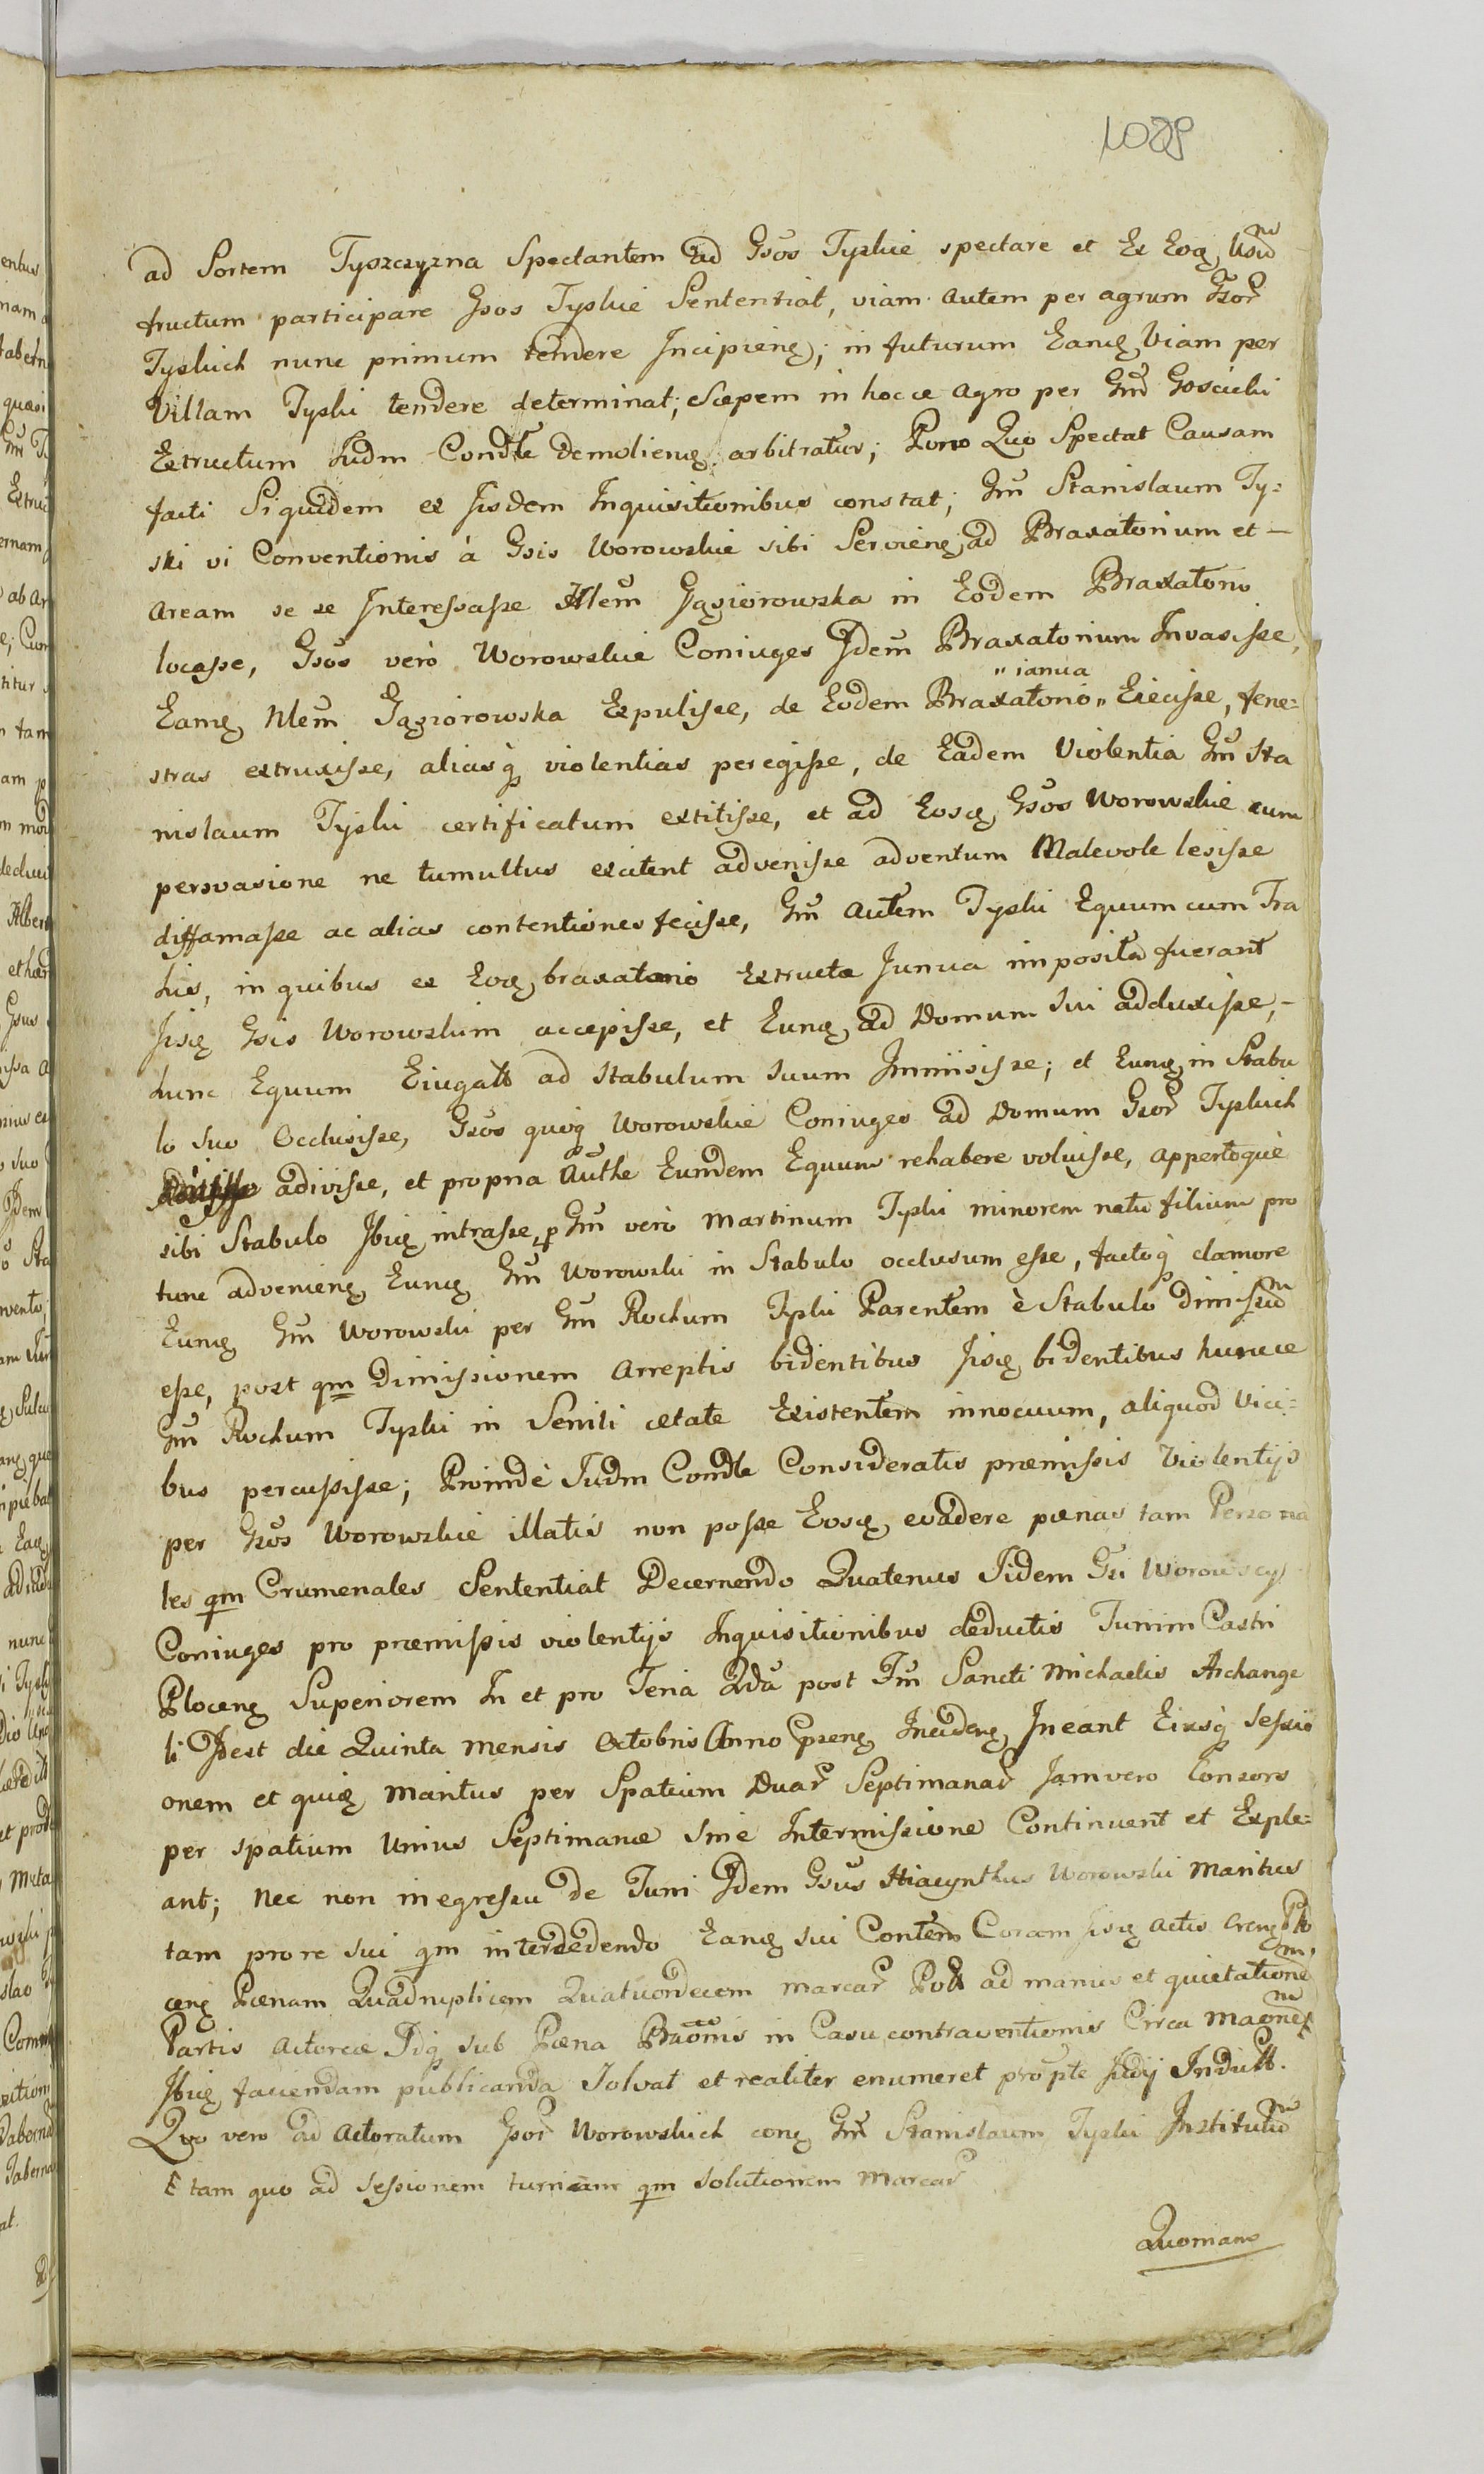 1089
ad Sortem Tyszczyzna Spectantem ad Gsōs Tyskie spectare et Ex Eoq, Usum
fructum participare Gsos Tyskie Sententiat, viam autem per agrum Gsor
Tyskich nunc primum tendere Incipieng; in futurum Eamq, Viam per
Villam Tyski tendere determinat; Sæpem in hocce agro per Gm̄ Gościcki
Extructum Judm Condle Demoliemq, arbitratur; Porro Quo Spectat Causam
facti Siquidem ex Jisdem Inquisitionibus constat; Gm̄ Stanislaum Ty=
ski vi Conventionis à Gsis Worowskie sibi Servieng, ad Braxatorium et —
aream se se Interessasse Nlem̄ Gąsiorowska in Eodem Braxatorio
locasse, Gsōs verò Worowskie Coniuges Idem̄ Braxatorium Invasisse,
" ianua
Eamq Nlem̄ Gąsiorowska Expulisse, de Eodem Braxatorio " Eiecisse, fene=
stras extruxisse, aliasq́ violentias peregisse, de Eadem Violentia Gm̄ Sta
nislaum Tyski certificatum extitisse, et ad Eosq, Gsōs Worowskie cum
persvasione ne tumultus excitent advenisse adventum Malevole lesisse
diffamasse ac alias contentiones fecisse, Gm̄ autem Tyski Equum cum Tra
his, in quibus ex Eoq, braxatorio Extructa Janua imposita fuerant
Jisq Gsis Worowskim accepisse, et Eunq, ad Domum sui adduxisse, –
hunc Equum Eiugatt ad stabulum suum Immisisse; et Eunq, in Stabu
lo suo Occlusisse, Gsōs quoq́ Worowskie Coniuges ad Domum Gsor Tyskich
adivisse, et propria Authe Eumdem Equum rehabere voluisse, appertoque
sibi Stabulo Ibiq, intrasse, p Gm̄ verò Martinum Tyski minorem natu filium pro
tunc advenieng Eunq Gm̄ Worowski in Stabulo occlusum esse, factoq́ clamore
Eunq Gm̄ Worowski per Gm̄ Rochum Tyski Parentem è Stabulo Dimissum
esse, post qm Dimissionem arreptis bidentibus Jisq bidentibus huncce
Gm̄ Rochum Tyski in Senili ætate Existentem innocuum, aliquod Vici=
bus percusisse; Proindè Judm Condle Consideratis præmissis Violentijs
per Gsōs Worowskie illatis non posse Eosq, evadere pœnas tam Persona
les qm Crumenales Sententiat Decernendo Quatenus Iidem Gsi Worowscy
Coniuges pro præmissis violentijs Inquisitionibus deductis Turrim Castri
Ploceng Superiorem In et pro Feria 2da post Fm̄ Sancti Michaelis Archange
li Idest die Quinta mensis Octobris Anno Præseng Incideng, Ineant Eiusq́ Sessio
onem et quiq Maritus per Spatium Duar Septimanar Jamvero Consors
per spatium Unius Septimanæ Sine Intermissione Continuent et Exple=
ant; Nec non in egressu de Turri Idem Gsus Hiacynthus Worowski Maritus
tam pro re sui qm interdedendo Eamq, sui Contem Coram Jisq actis Creng Plo
ceng Pœnam Quadruplicem Quatuordecem marcar Poll ad manus et quietationem
Partis actoreæ Idq́ sub Pœna Bāōnis in Casu contraventionis Circa Maonem
Ibiq faciendam publicanda Solvat et realiter enumeret prōpte Judij Indutt.
Quo vero ad Actoratum Gsor Worowskich cong Gm̄ Stanislaum Tyski Institutum
tam quo ad Sessionem turricam qm Solutionem Marcar
Quoniam